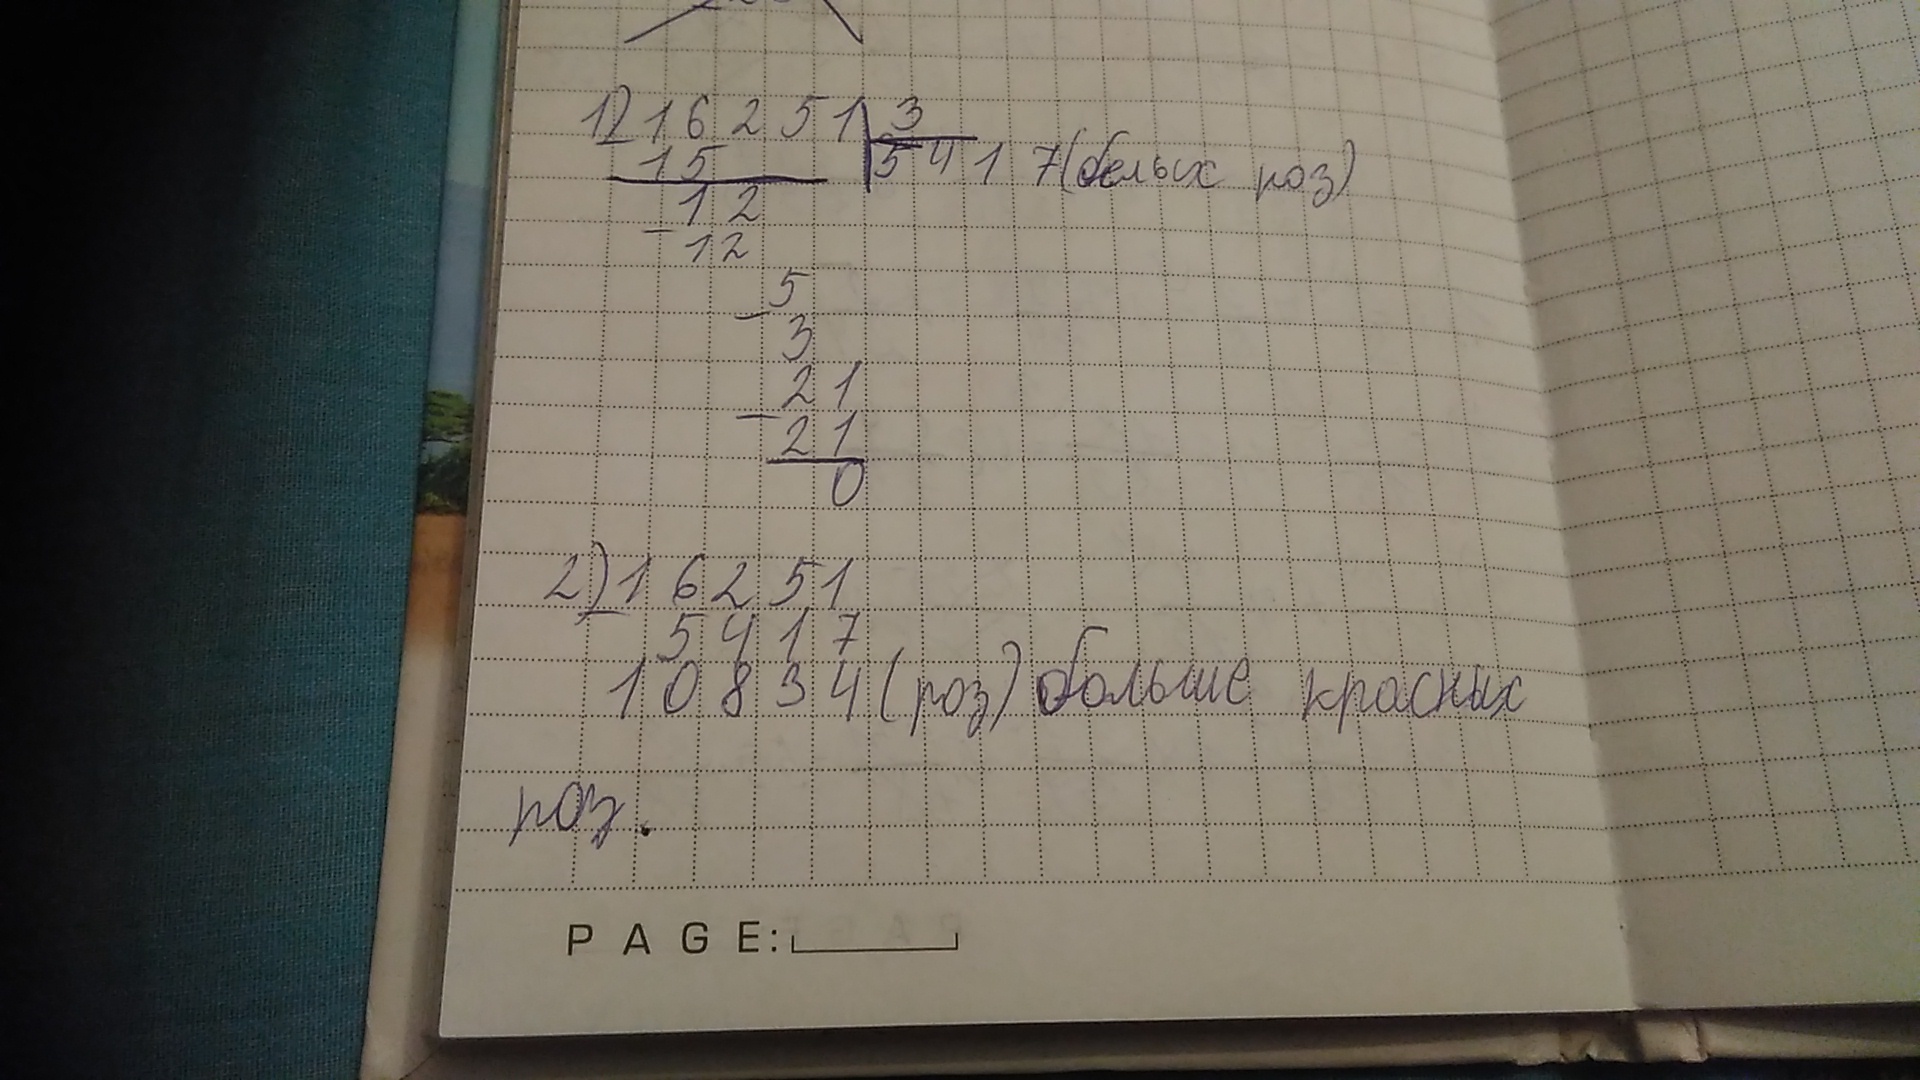 1) 16251 | 3
15 5417 (белых роз)
12
- 12
5
- 3
21
- 21
0
2) 16251
- 5417
10834 (роз) больше красных
роз.
PAGE: